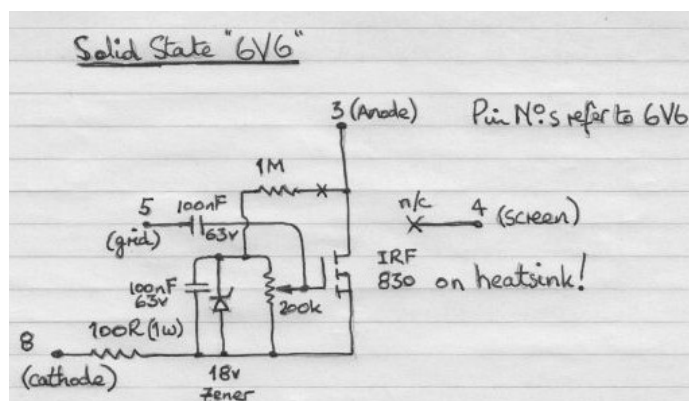 Solid State "6V6"
3 (Anode)
Pin Nº.s refer to 6V6
1M
n/c
5
100nF
4 (screen)
(grid)
63v
IRF
830 on heatsink!
100nF
63v
200k
100R (1W)
8
(cathode)
18v
Zener